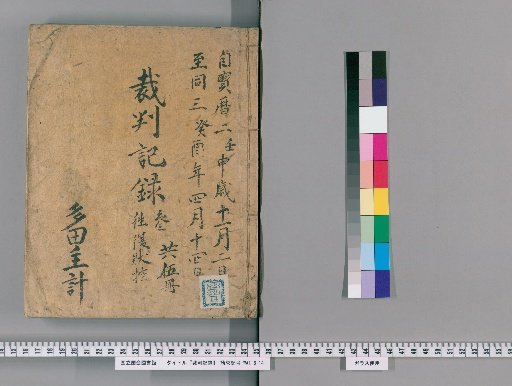 自寶暦二壬申歳十一月二日
至同三癸酉年四月十四日
裁判記録
共伍冊
往復状控
多田主計